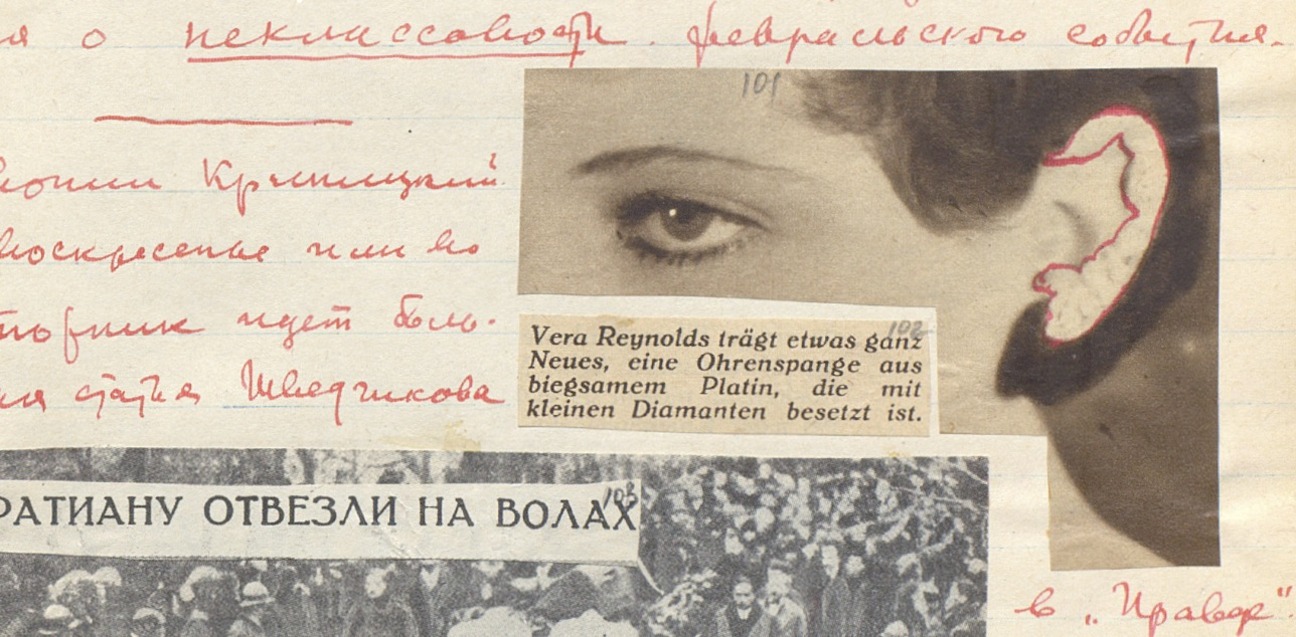 я о неклассовости февральского события.
101
Криницкий
воскресенье или во
вторник идет боль-
ая статья Шведчикова
102
Vera Reynolds trägt etwas ganz
Neues, eine Ohrenspange aus
biegsamem Platin, die mit
kleinen Diamanten besetzt ist.
РАТИАНУ ОТВЕЗЛИ НА ВОЛАХ
103
в „Правде"